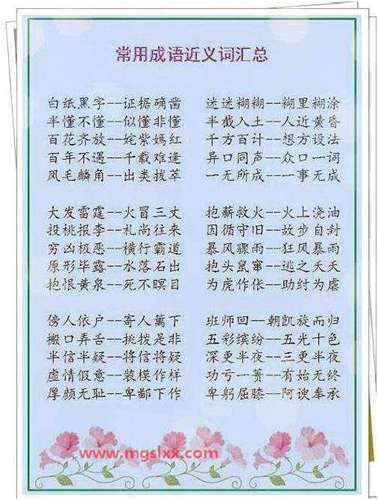 常用成语近义词汇总
白纸黑字--证据确凿 迷迷糊糊--糊里糊涂
半懂不懂--似懂非懂 半截入土--人近黄昏
百花齐放--姹紫嫣红 千方百计--想方设法
百年不遇--千载难逢 异口同声--众口一词
凤毛麟角--出类拔萃 一无所成--一事无成
大发雷霆--火冒三丈 抱薪救火--火上浇油
投桃报李--礼尚往来 因循守旧--故步自封
穷凶极恶--横行霸道 暴风骤雨--狂风暴雨
原形毕露--水落石出 抱头鼠窜--逃之夭夭
抱恨黄泉--死不瞑目 为虎作伥--助纣为虐
傍人依户--寄人篱下 班师回--朝凯旋而归
搬口弄舌--挑拨是非 五彩缤纷--五光十色
半信半疑--将信将疑 深更半夜--三更半夜
虚情假意--装模作样 功亏一篑--有始无终
厚颜无耻--卑鄙下作 卑躬屈膝--阿谀奉承
www.mgslxx.com